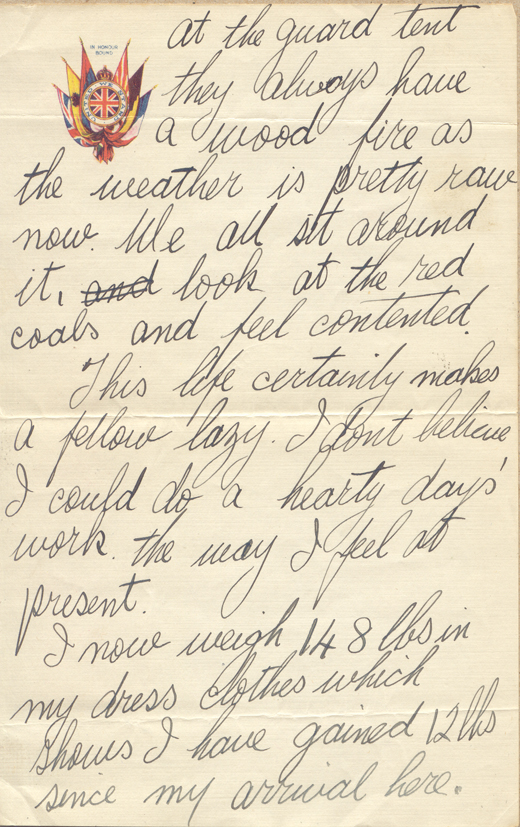 IN HONOUR
BOUND
at the guard tent
they always have
a wood fire as
the weather is pretty raw
now. We all sit around
it, and look at the red
coals and feel contented.
This life certainly makes
a fellow lazy. I don't believe
I could do a hearty days'
work. the way I feel at
present.
I now weigh 148 lbs in
my dress clothes which
shows I have gained 12 lbs
since my arrival here.